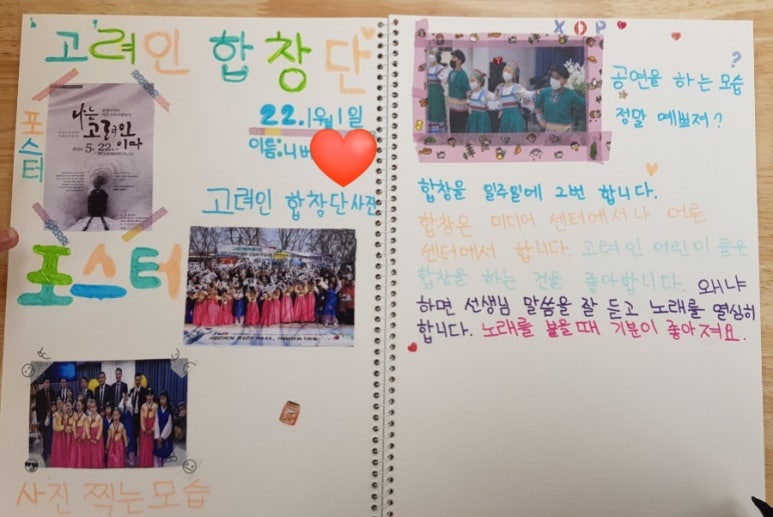 고려인 합창단
22. 11월 1일
이름:니
포스터
나는
고려인
이다
5. 22.
고려인 합창단사진
포스터
사진 찍는모습
ХОР
공연을 하는 모습
정말 예쁘져?
합창을 일주일에 2번 합니다.
합창은 미디어 센터에서나 어른
센터에서 합니다. 고려인 어린이들은
합창을 하는 것을 좋아합니다. 왜냐
하면 선생님 말씀을 잘 듣고 노래를 열심히
합니다. 노래를 부을때 기분이 좋아져요.